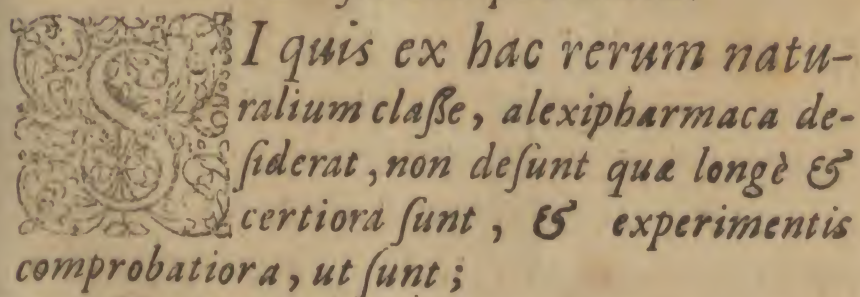 SI quis ex hac rerum natu-
ralium claſſe, alexipharmaca de-
ſiderat, non deſunt quæ longè &
certiora ſunt, & experimentis
comprobatiora, ut ſunt;